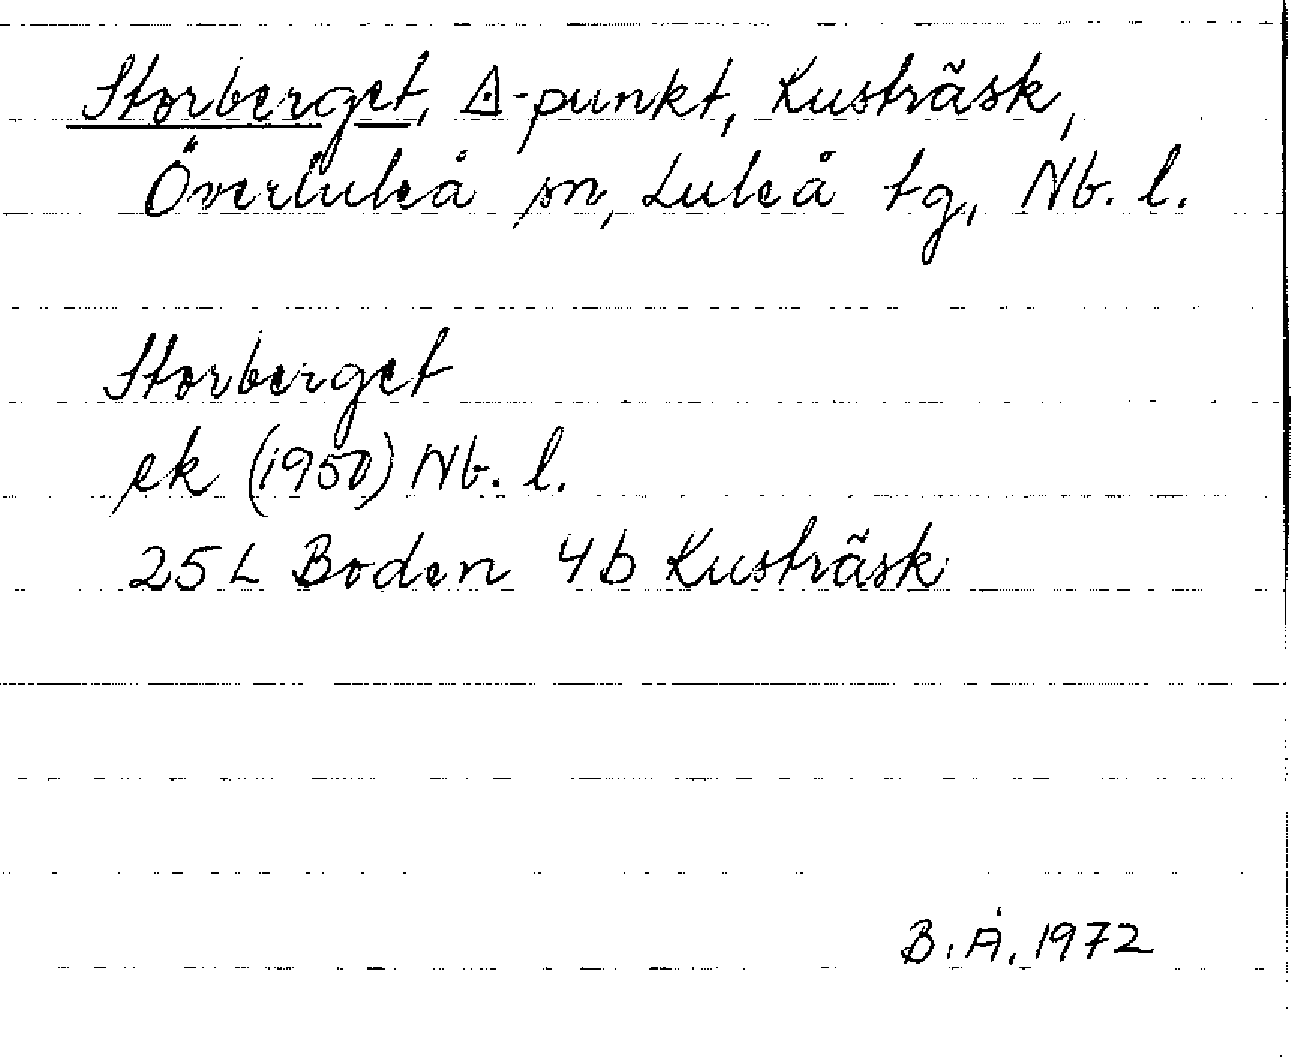 Storberget, ◬-punkt, Kusträsk,
Överluleå sn, Luleå tg, Nb. l.
Storberget
ek (1950) Nb. l.
25 L Boden 4b Kusträsk
B. Å. 1972